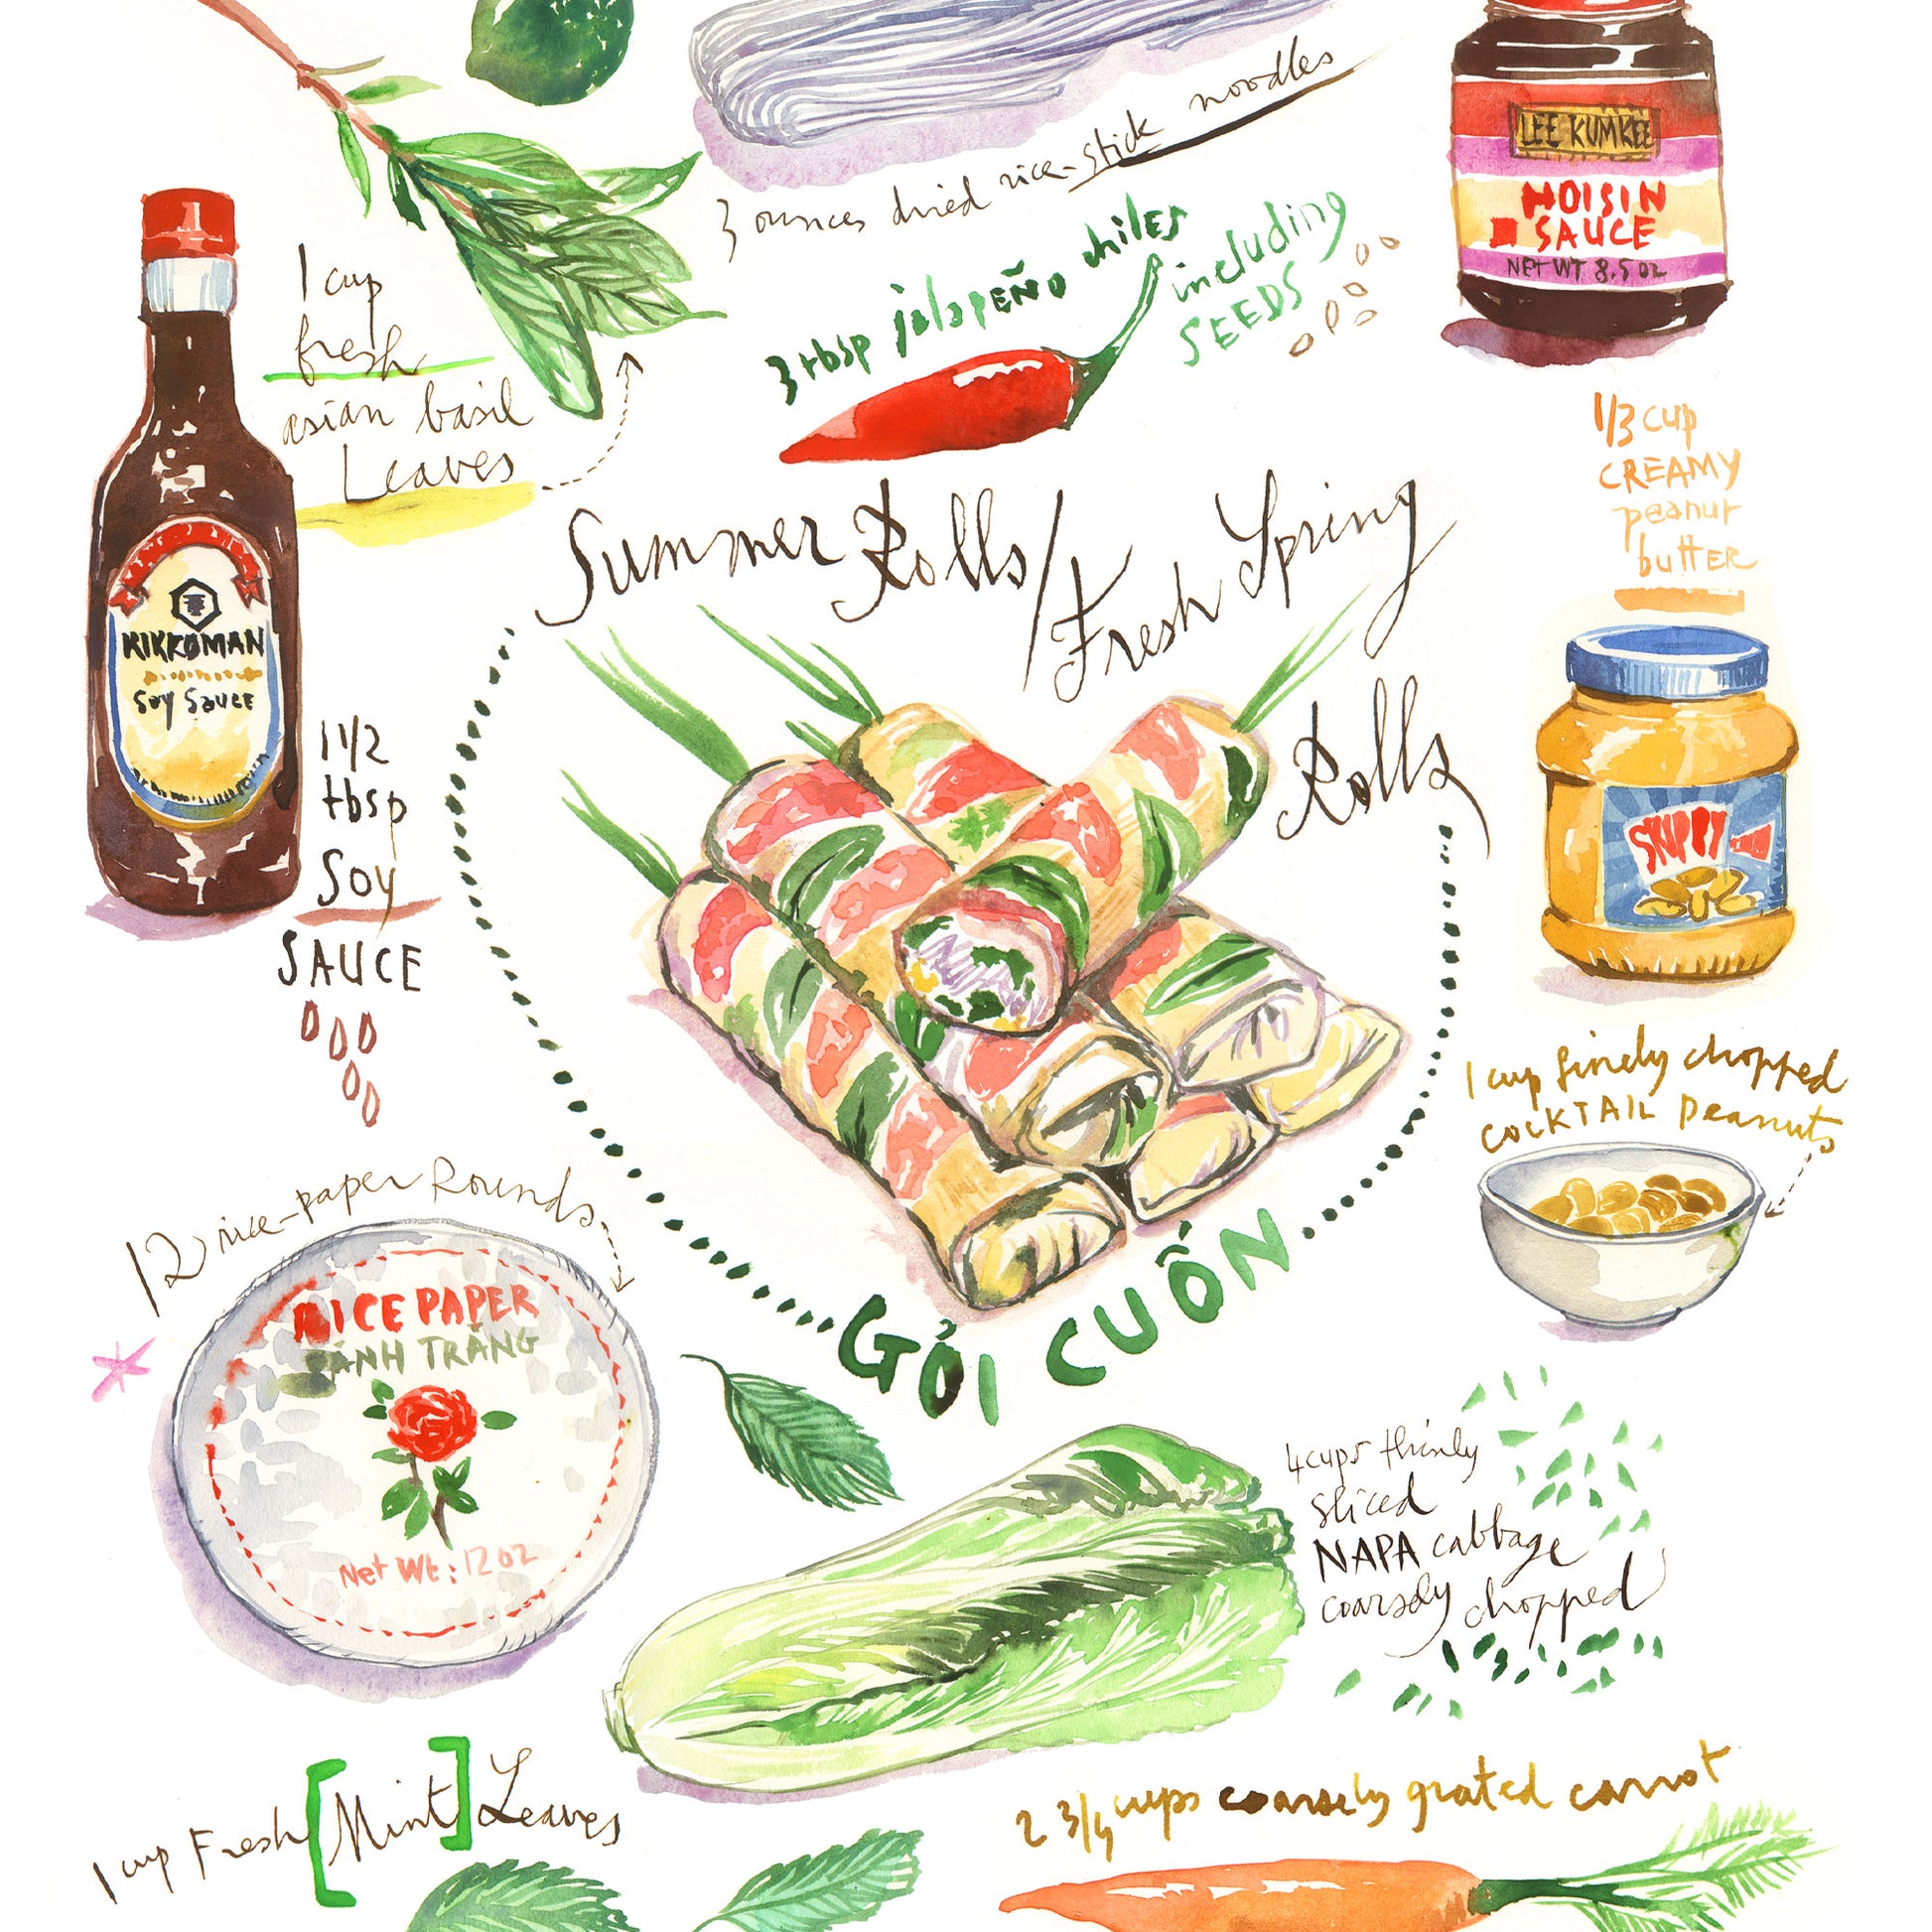 3 ounces dried rice-stick noodles
LEE KUM KEE
HOISIN
SAUCE
NET WT 8.5 oz
3 tbsp jalapeño chiles
including
SEEDS
1 cup
fresh
asian basil
Leaves
1/3 cup
CREAMY
peanut
butter
Summer Rolls/
Fresh Spring
Rolls
KIKKOMAN
Soy Sauce
1 1/2
tbsp
Soy
SAUCE
SKIPPY
1 cup finely chopped
COCKTAIL peanuts
12 rice-paper Rounds
RICE PAPER
BÁNH TRÁNG
Net Wt: 12 oz
GỎI CUỐN
4 cups thinly
sliced
NAPA cabbage
coarsely chopped
1 cup Fresh [Mint] Leaves
2 3/4 cups coarsely grated carrot